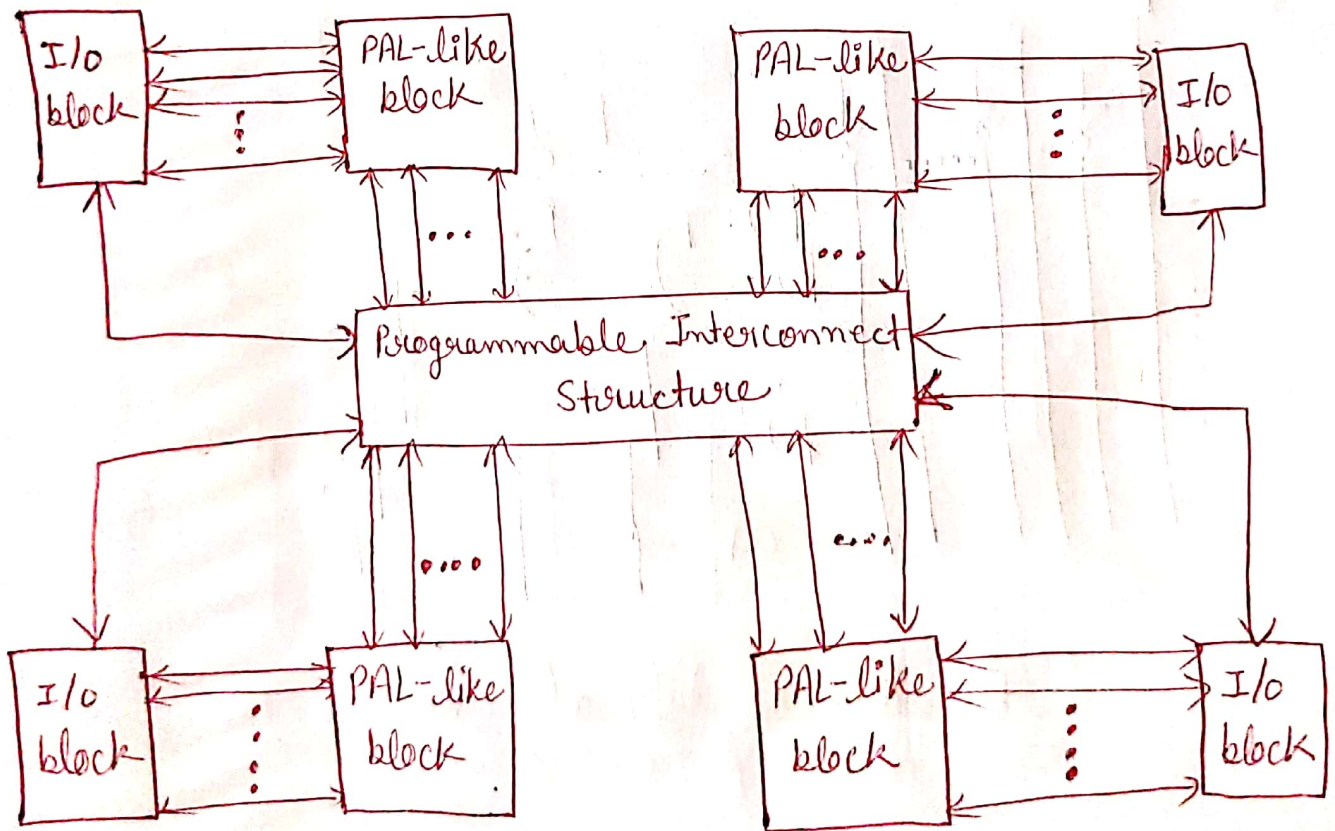 I/O
block
PAL-like
block
PAL-like
block
I/O
block
Programmable Interconnect
Structure
I/O
block
PAL-like
block
PAL-like
block
I/O
block